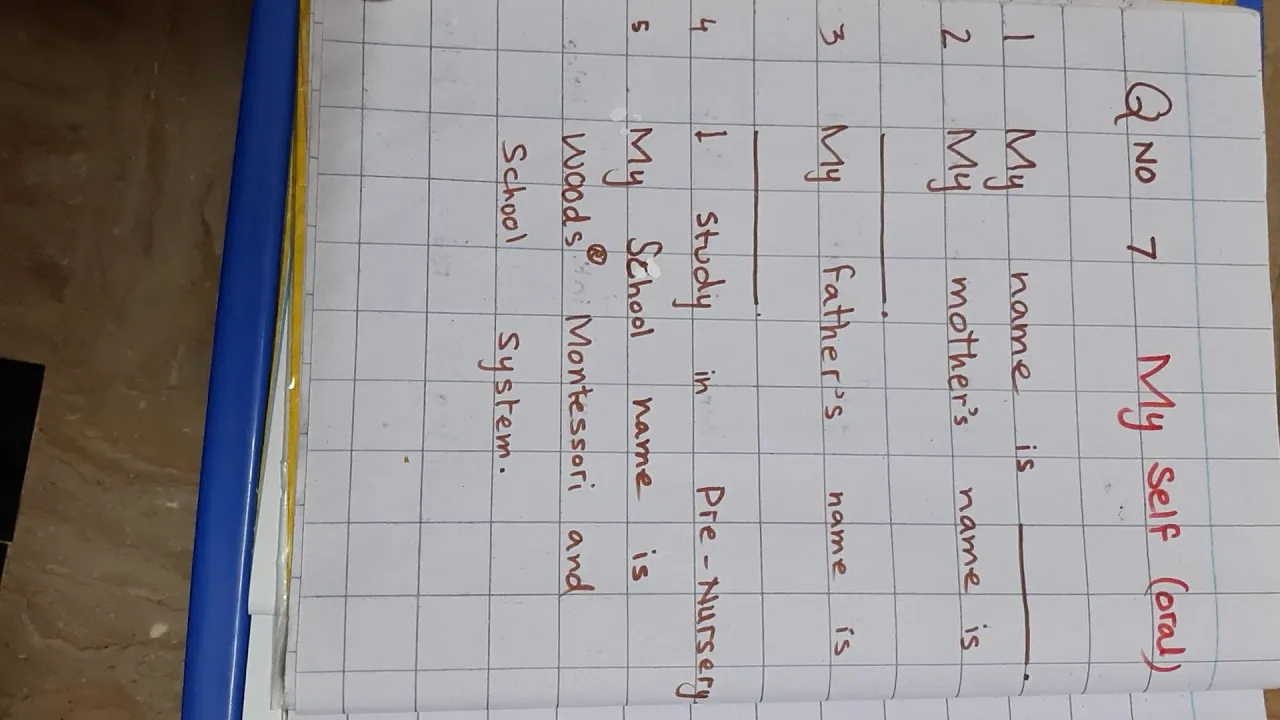 Q No 7 My Self (oral)
1 My name is ______.
2 My mother's name is
______.
3 My father's name is
______.
4 I study in Pre-Nursery
5 My School name is
Woods ® Montessori and
School System.